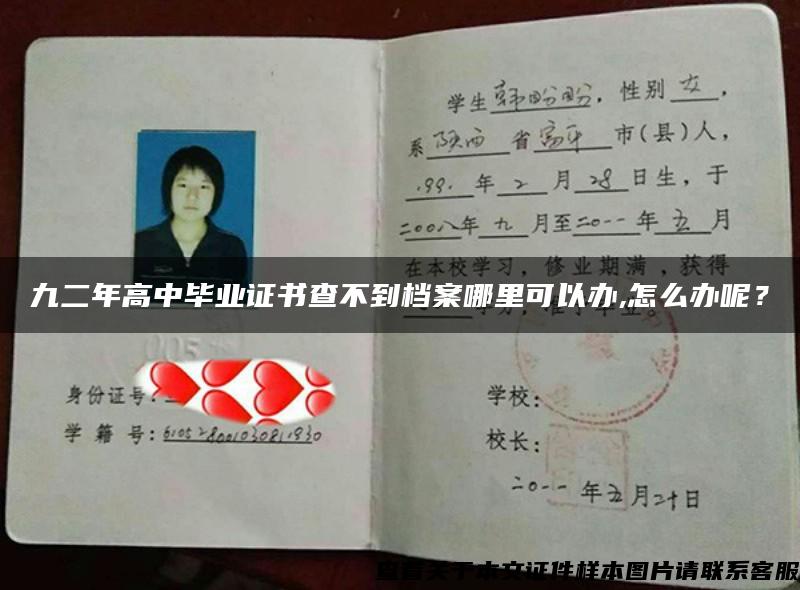 学生韩盼盼，性别女，
系陕西省富平市(县)人，
1991年2月28日生，于
二00八年九月至二0一一年五月
在本校学习，修业期满，获得
九二年高中毕业证书查不到档案哪里可以办,怎么办呢？
身份证号：
学 籍 号：
学校：
校长：
二0一一年五月二十日
查看关于本文证件样本图片请联系客服